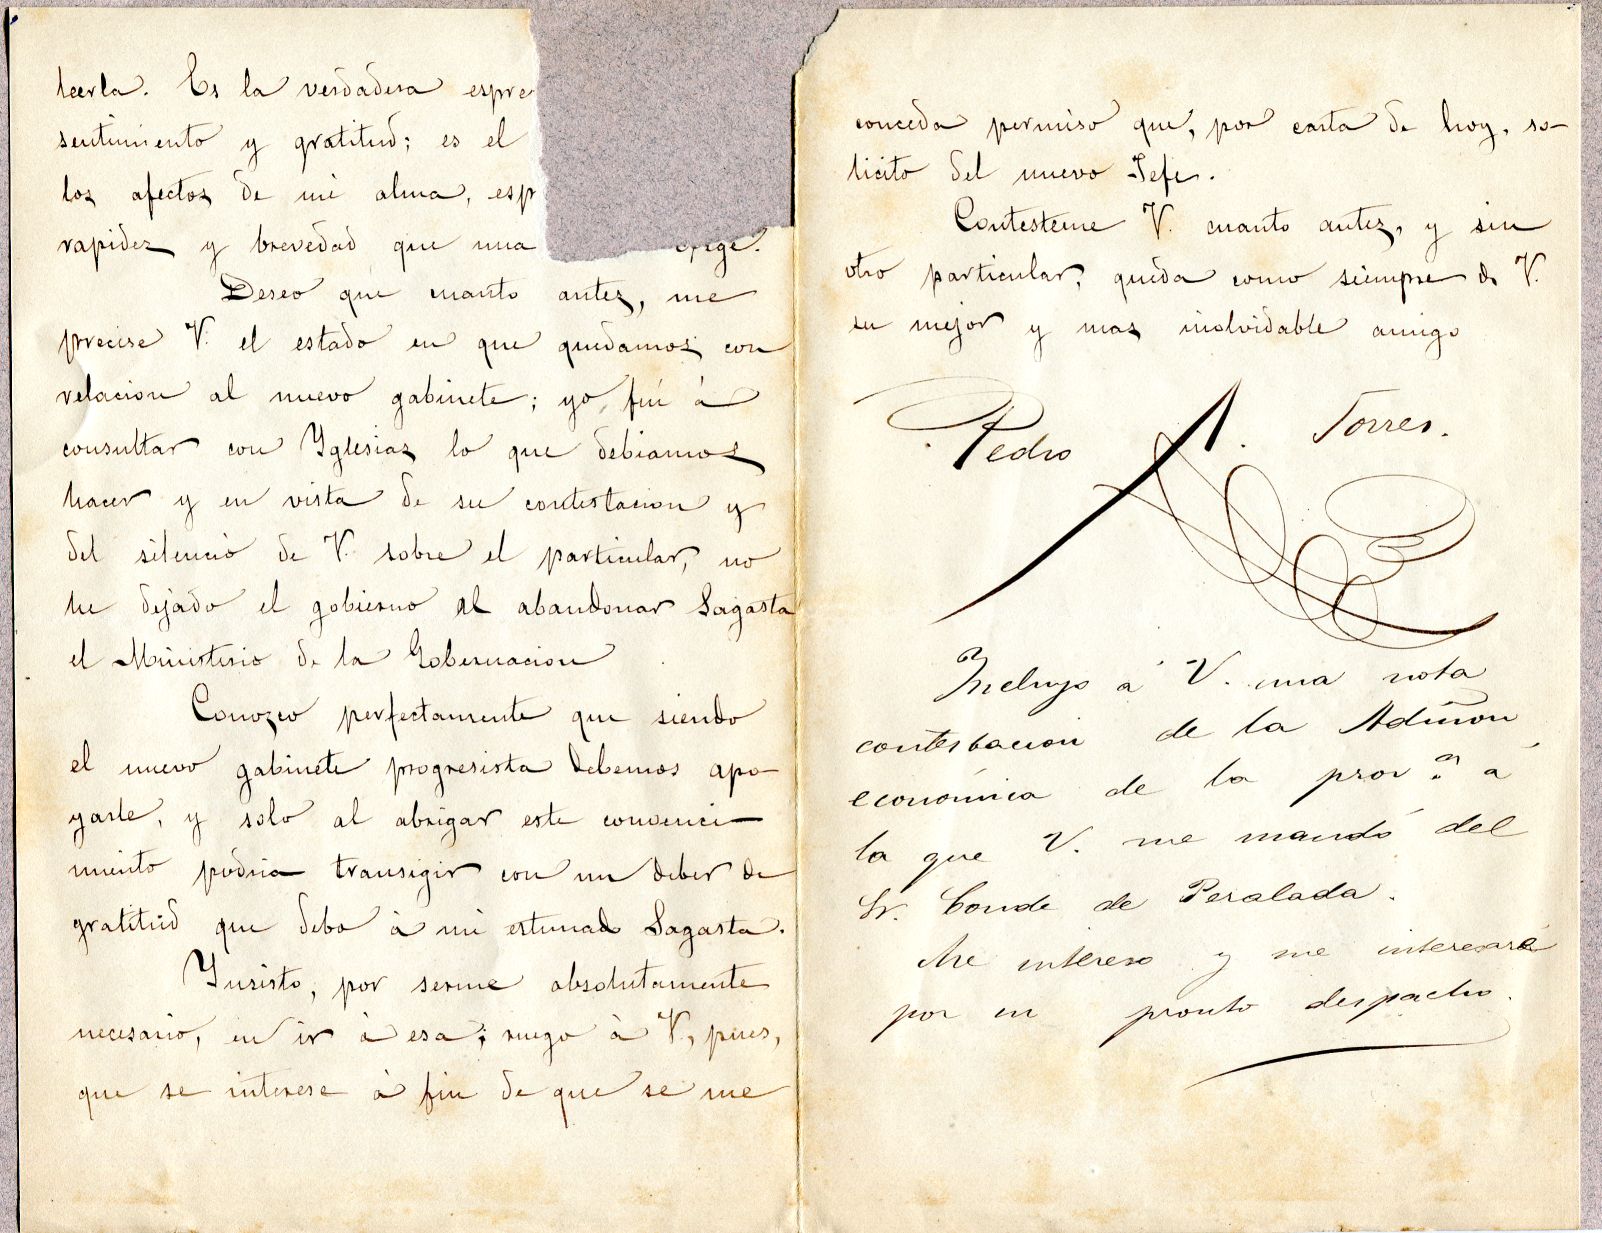 leerla. Es la verdadera espre
sentimiento y gratitud; es el
los afectos de mi alma, esp
rapidez y brevedad que una exige.
Deseo que cuanto antes, me
precise V. el estado en que quedamos con
relacion al nuevo gabinete; yo fuí á
consultar con Yglesias lo que debiamos
hacer y en vista de su contestacion y
del silencio de V. sobre el particular, no
he dejado el gobierno al abandonar Sagasta
el Ministerio de la Gobernacion
Conozco perfectamente que siendo
el nuevo gabinete progresista debemos apo-
yarle, y solo al abrigar este convenci-
miento podria transigir con un deber de
gratitud que debo á mi estimado Sagasta.
Ynsisto, por serme absolutamente
necesario, en ir á esa; ruego á V, pues,
que se interese á fin de que se me
conceda permiso que, por carta de hoy, so-
licito del nuevo Jefe.
Contésteme V. cuanto antes, y sin
otro particular, queda como siempre de V.
su mejor y mas inolvidable amigo
Pedro A. Torres.
Incluyo á V. una nota
contestacion de la Admon
económica de la provª á
la que V. me mandó del
Sr. Conde de Peralada.
Me intereso y me interesaré
por su pronto despacho.